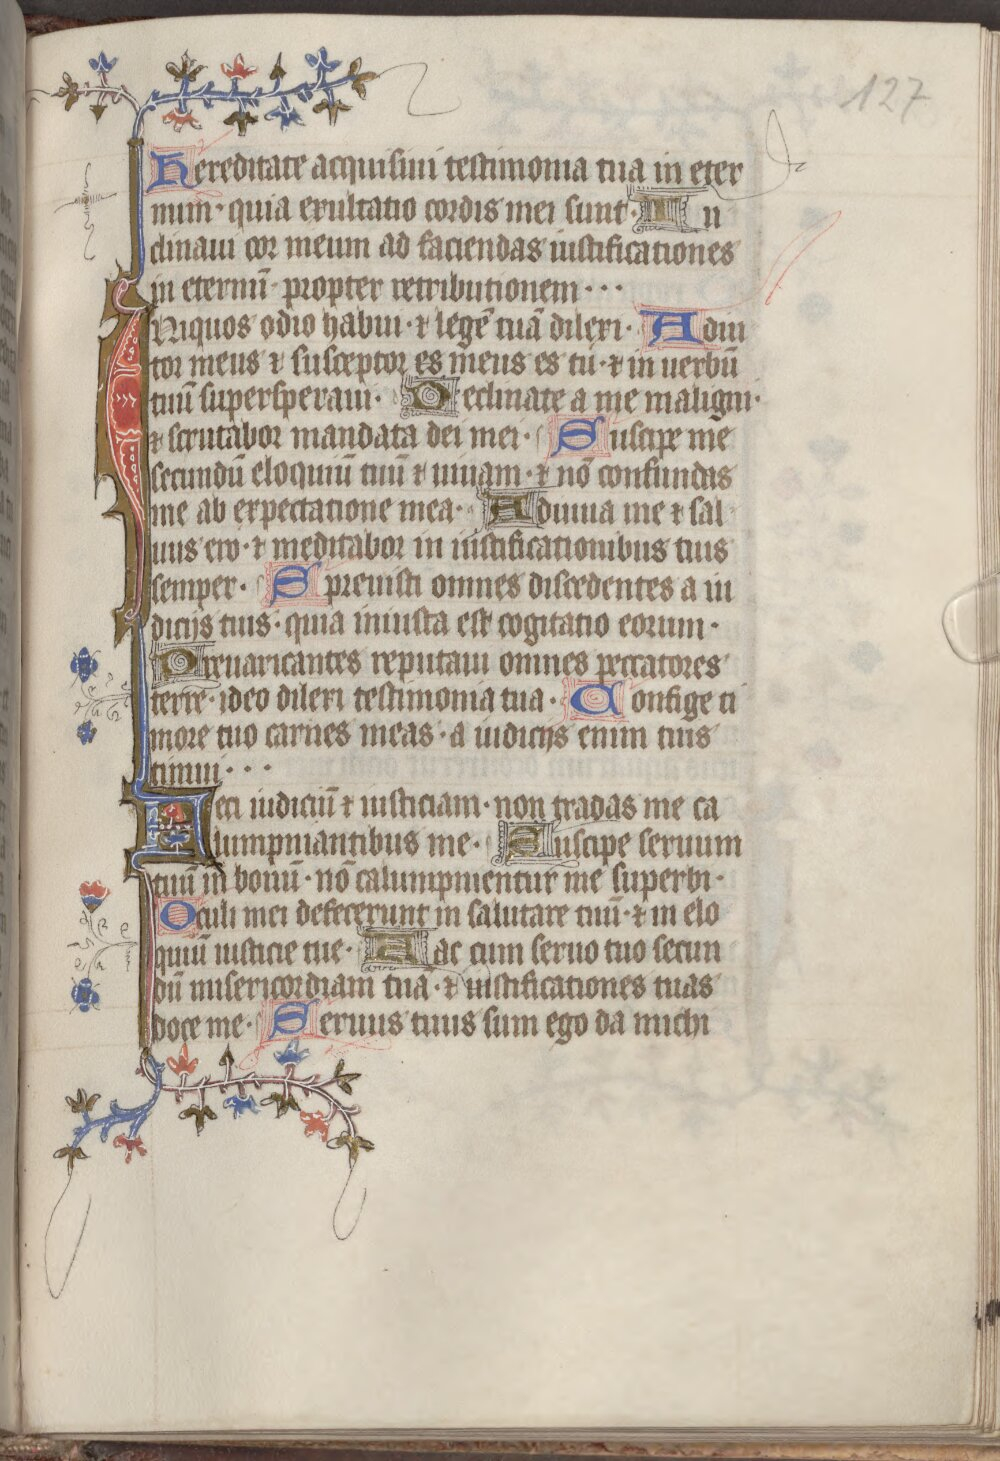 127
Hereditate acquisiui testimonia tua in eter
num · quia exultatio cordis mei sunt · In
clinaui cor meum ad faciendas iustificationes
in eternū · propter retributionem · · ·
Iniquos odio habui · ⁊ legē tuā dilexi · Adiu
tor meus ⁊ susceptor es meus es tu · ⁊ in uerbū
tuū supersperaui · Declinate a me maligni ·
⁊ scrutabor mandata dei mei · Suscipe me
secundū eloquiū tuū ⁊ uiuam · ⁊ nō confundas
me ab expectatione mea · Adiuua me ⁊ sal
uus ero · ⁊ meditabor in iustificationibus tuis
semper · Spreuisti omnes discedentes a iu
dicijs tuis · quia iniusta est cogitatio eorum ·
Preuaricantes reputaui omnes peccatores
terre · ideo dilexi testimonia tua · Confige ti
more tuo carnes meas · a iudicijs enim tuis
timui · · ·
Feci iudiciū ⁊ iusticiam · non tradas me ca
lumpniantibus me · Suscipe seruum
tuū in bonū · nō calumpnientur me superbi ·
Oculi mei defecerunt in salutare tuū · ⁊ in elo
quiū iusticie tue · Fac cum seruo tuo secun
dū misericordiam tuā · ⁊ iustificationes tuas
doce me · Seruus tuus sum ego da michi